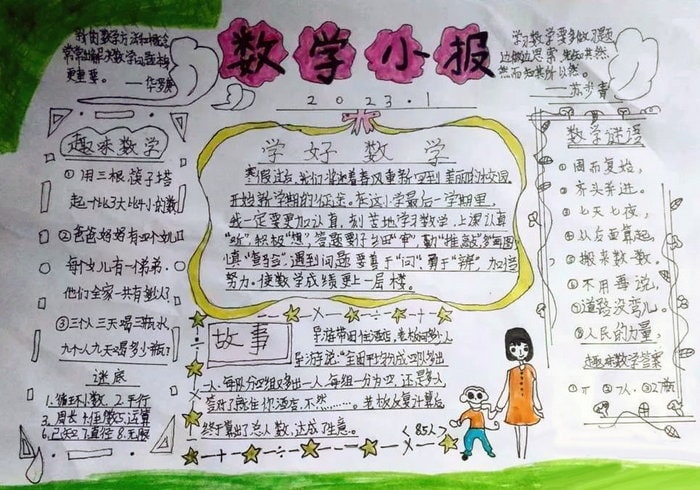 数学小报
新的数学方法和概念
常常比解决数学问题本身
更重要。
——华罗庚
学习数学要多做习题
边做边思索 先知其然
然而知其所以然。
——苏步青
2023.1
趣味数学
①用三根筷子搭
起一个比3大比4小的数
②爸爸妈妈有四个女儿
每个女儿有一个弟弟.
他们全家一共有多少人?
③三个人三天喝三瓶水,
九个人九天喝多少瓶?
谜底
1.循环小数. 2.平行
3.周长 4.任意数5.运算
6.已知 7.直径 8.无限
学好数学
寒假过后,我们将迎着春风重新回到美丽的校园
开始新学期的征途。在这小学最后一学期里,
我一定要更加认真,刻苦地学习数学,上课认真
"听",积极"想",答题要仔细"审",勤"推敲"
慎"复习",遇到问题要善于"问",勇于"辨",加倍
努力,使数学成绩更上一层楼。
故事
导游带团住酒店,老板问多少人
导游说:"全团平均分成四队多出
一人,每队分四组又多出一人,每组一分为四,还是多一人,
答对了就住你酒店,不然………。老板反复计算后
终于算出了总人数,达成了生意。
<85人>
数学谜语
①周而复始,
②齐头并进。
③七天七夜,
④从后面算起,
⑤搬来数数。
⑥不用再说,
⑦道路没弯儿。
⑧人民的力量,
趣味数学答案
①π ②7人, ③27瓶